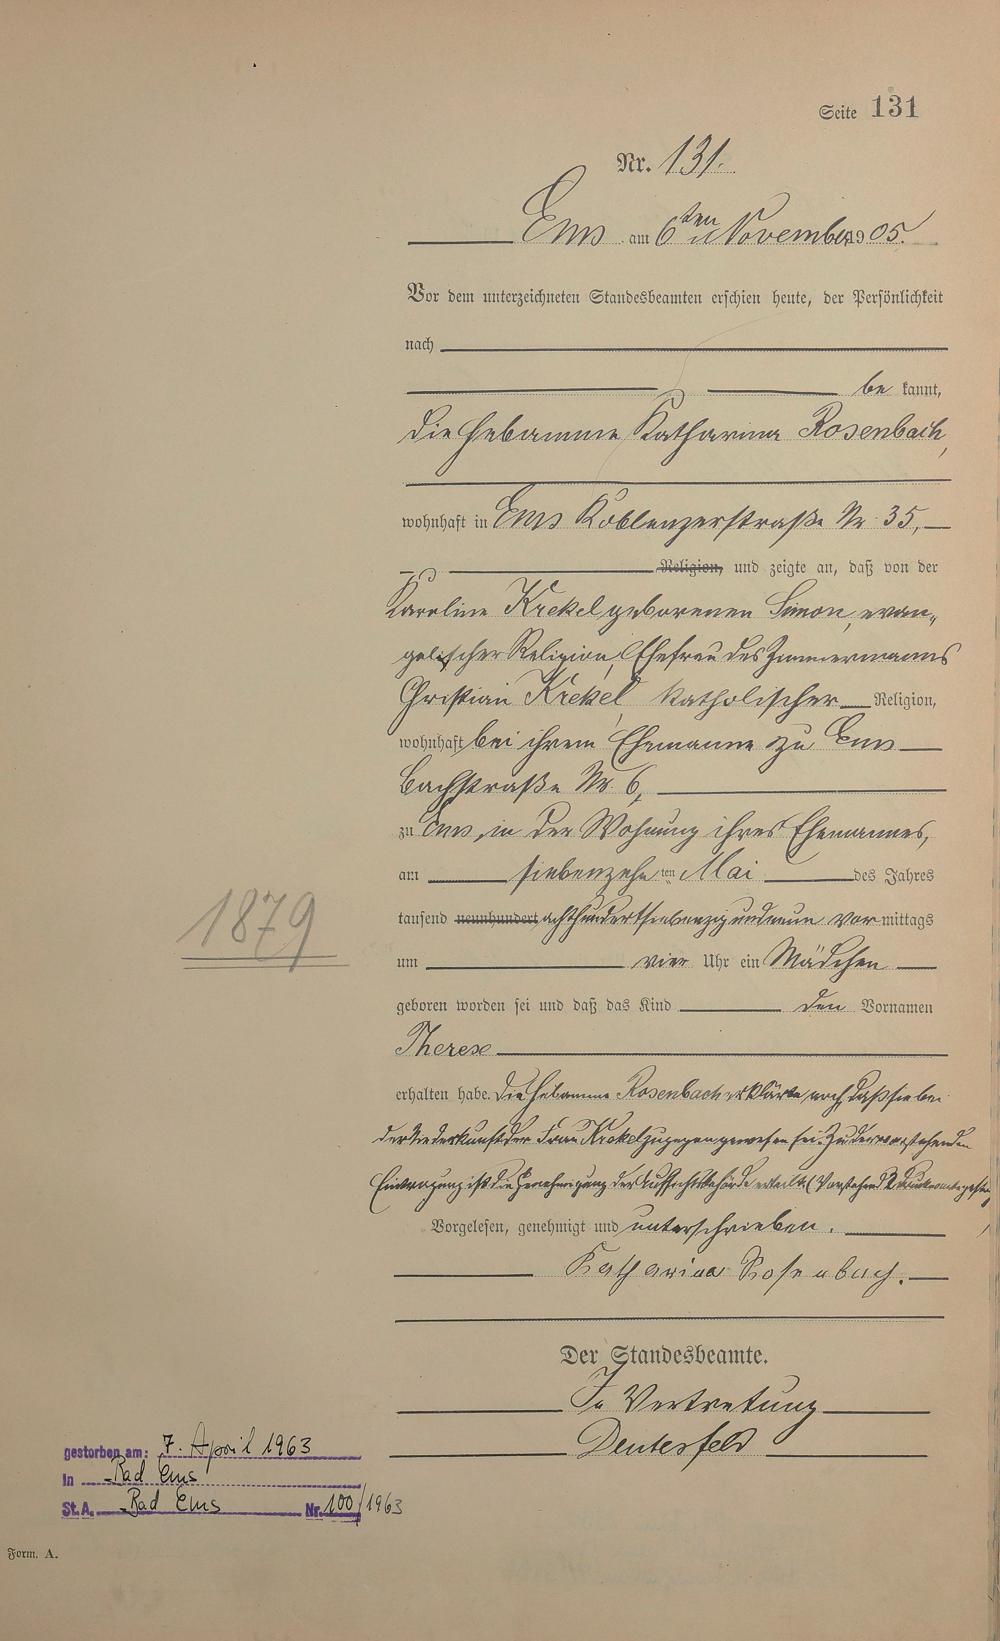 Seite 131
Nr. 131.
Ems am 6ten November 1905.
Vor dem unterzeichneten Standesbeamten erschien heute, der Persönlichkeit
nach
be kannt,
die Hebamme Katharina Rosenbach,
wohnhaft in Ems Koblenzerstraße Nr. 35,
Religion, und zeigte an, daß von der
Karoline Krekel geborenen Simon, evan-
gelischer Religion, Ehefrau des Zimmermanns
Christian Krekel, katholischer Religion,
wohnhaft bei ihrem Ehemanne zu Ems
Bachstraße Nr. 6,
zu Ems, in der Wohnung ihres Ehemannes,
am siebenzehnten Mai des Jahres
1879
tausend neunhundert achthundertsiebenzigundneun vor mittags
um vier Uhr ein Mädchen
geboren worden sei und daß das Kind den Vornamen
Therese
erhalten habe. Die Hebamme Rosenbach erklärte noch, daß sie bei
der Niederkunft der Frau Krekel zugegen gewesen sei. Zu der vorstehenden
Eintragung ist die Genehmigung der Aufsichtsbehörde erteilt. (Vorstehend 2 Druckworte gestrichen)
Vorgelesen, genehmigt und unterschrieben.
Katharina Rosenbach.
Der Standesbeamte.
In Vertretung
Deutesfeld
gestorben am: 7. April 1963
in Bad Ems
St.A. Bad Ems Nr. 100/1963
Form. A.